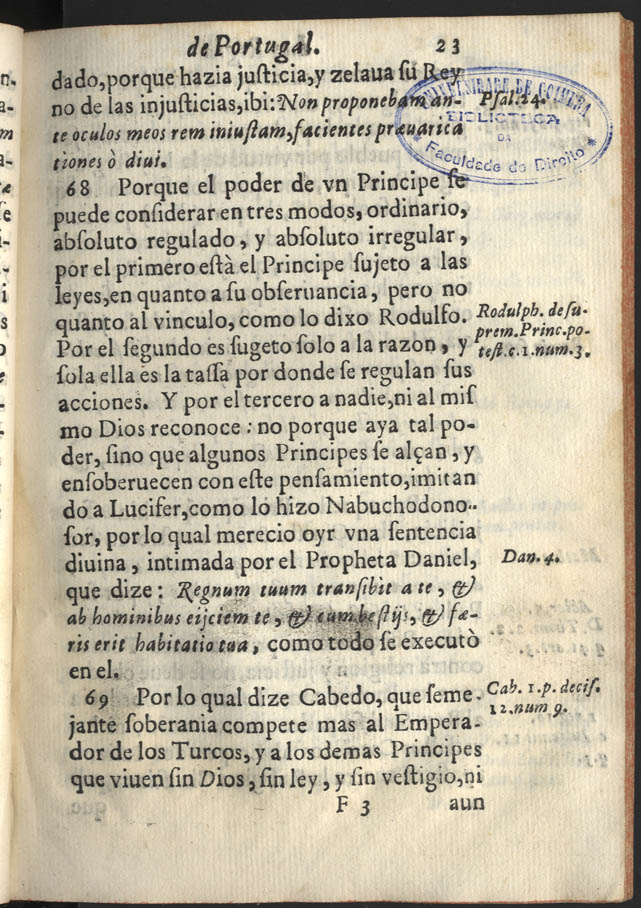 de Portugal. 23
dado, porque hazia juſticia, y zelaua ſu Rey
no de las injuſticias, ibi: Non proponebam an-
te oculos meos rem iniuſtam, facientes præuarica
tiones ò diui.
Pſal. 24.
UNIVERSIDADE DE COIMBRA
BIBLIOTECA
DA
* Faculdade de Direito *
68 Porque el poder de vn Principe ſe
puede conſiderar en tres modos, ordinario,
abſoluto regulado, y abſoluto irregular,
por el primero eſtà el Principe ſujeto a las
leyes, en quanto a ſu obſeruancia, pero no
quanto al vinculo, como lo dixo Rodulfo.
Rodulph. de ſu-
prem. Princ. po-
teſt. c. 1. num. 3.
Por el ſegundo es ſugeto ſolo a la razon, y
ſola ella es la taſſa por donde ſe regulan sus
acciones. Y por el tercero a nadie, ni al miſ
mo Dios reconoce: no porque aya tal po-
der, ſino que algunos Principes ſe alçan, y
enſoberuecen con eſte penſamiento, imitan
do a Lucifer, como lo hizo Nabuchodono-
ſor, por lo qual merecio oyr vna ſentencia
diuina, intimada por el Propheta Daniel,
Dan. 4.
que dize: Regnum tuum tranſibit a te, &
ab hominibus eijciem te, & cum beſtijs, & fæ-
ris erit habitatio tua, como todo ſe executò
en el.
69 Por lo qual dize Cabedo, que ſeme-
Cab. 1. p. deciſ.
12. num 9.
jante ſoberania compete mas al Empera-
dor de los Turcos, y a los demas Principes
que viuen ſin Dios, ſin ley, y ſin veſtigio, ni
F 3 aun